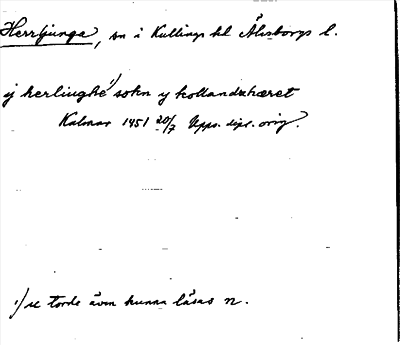 Herrljunga, sn i Kullings hd Älvsborgs l.
ij herliughe 1) sokn ij kollandzhæret
Kalmar 1451 20/7 Upps. dipl. orig.
1) u torde även kunna läsas n.